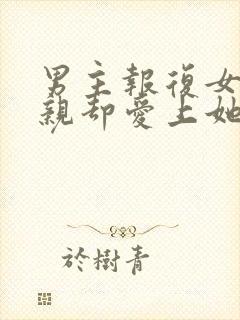 男主報復女
親却愛上她
於樹青